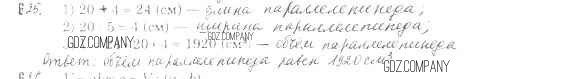 6.35. 1) 20 + 4 = 24 (см) — длина параллелепипеда;
2) 20 : 5 = 4 (см) — ширина параллелепипеда;
GDZ.COMPANY 20 · 4 = 1920 (см³) — объём параллелепипеда
Ответ: объём параллелепипеда равен 1920 см³
GDZ.COMPANY